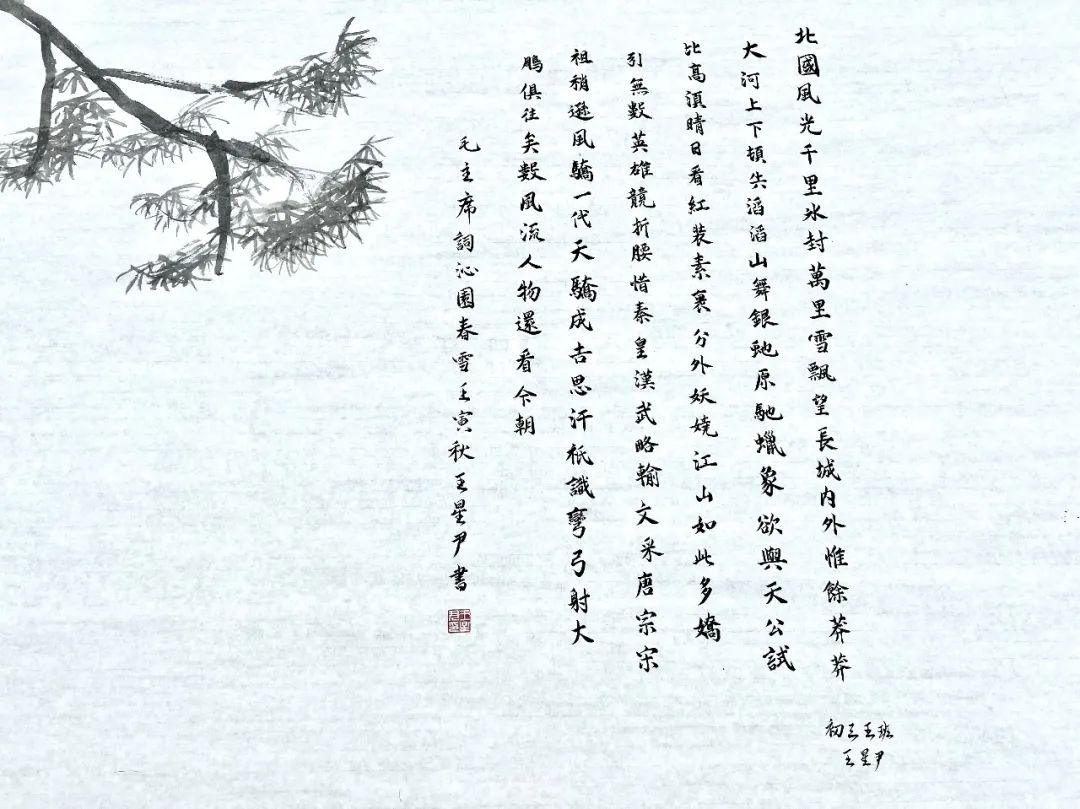 北國風光千里氷封萬里雪飄望長城内外惟餘莽莽
大河上下頓失滔滔山舞銀虵原馳蠟象欲與天公試
比高須晴日看紅裝素裹分外妖嬈江山如此多嬌
引無数英雄競折腰惜秦皇漢武略輸文采唐宗宋
祖稍遜風驕一代天驕成吉思汗祇識彎弓射大
鵰俱往矣數風流人物還看今朝
毛主席詞沁園春雪壬寅秋王星尹書
初三王班
王星尹